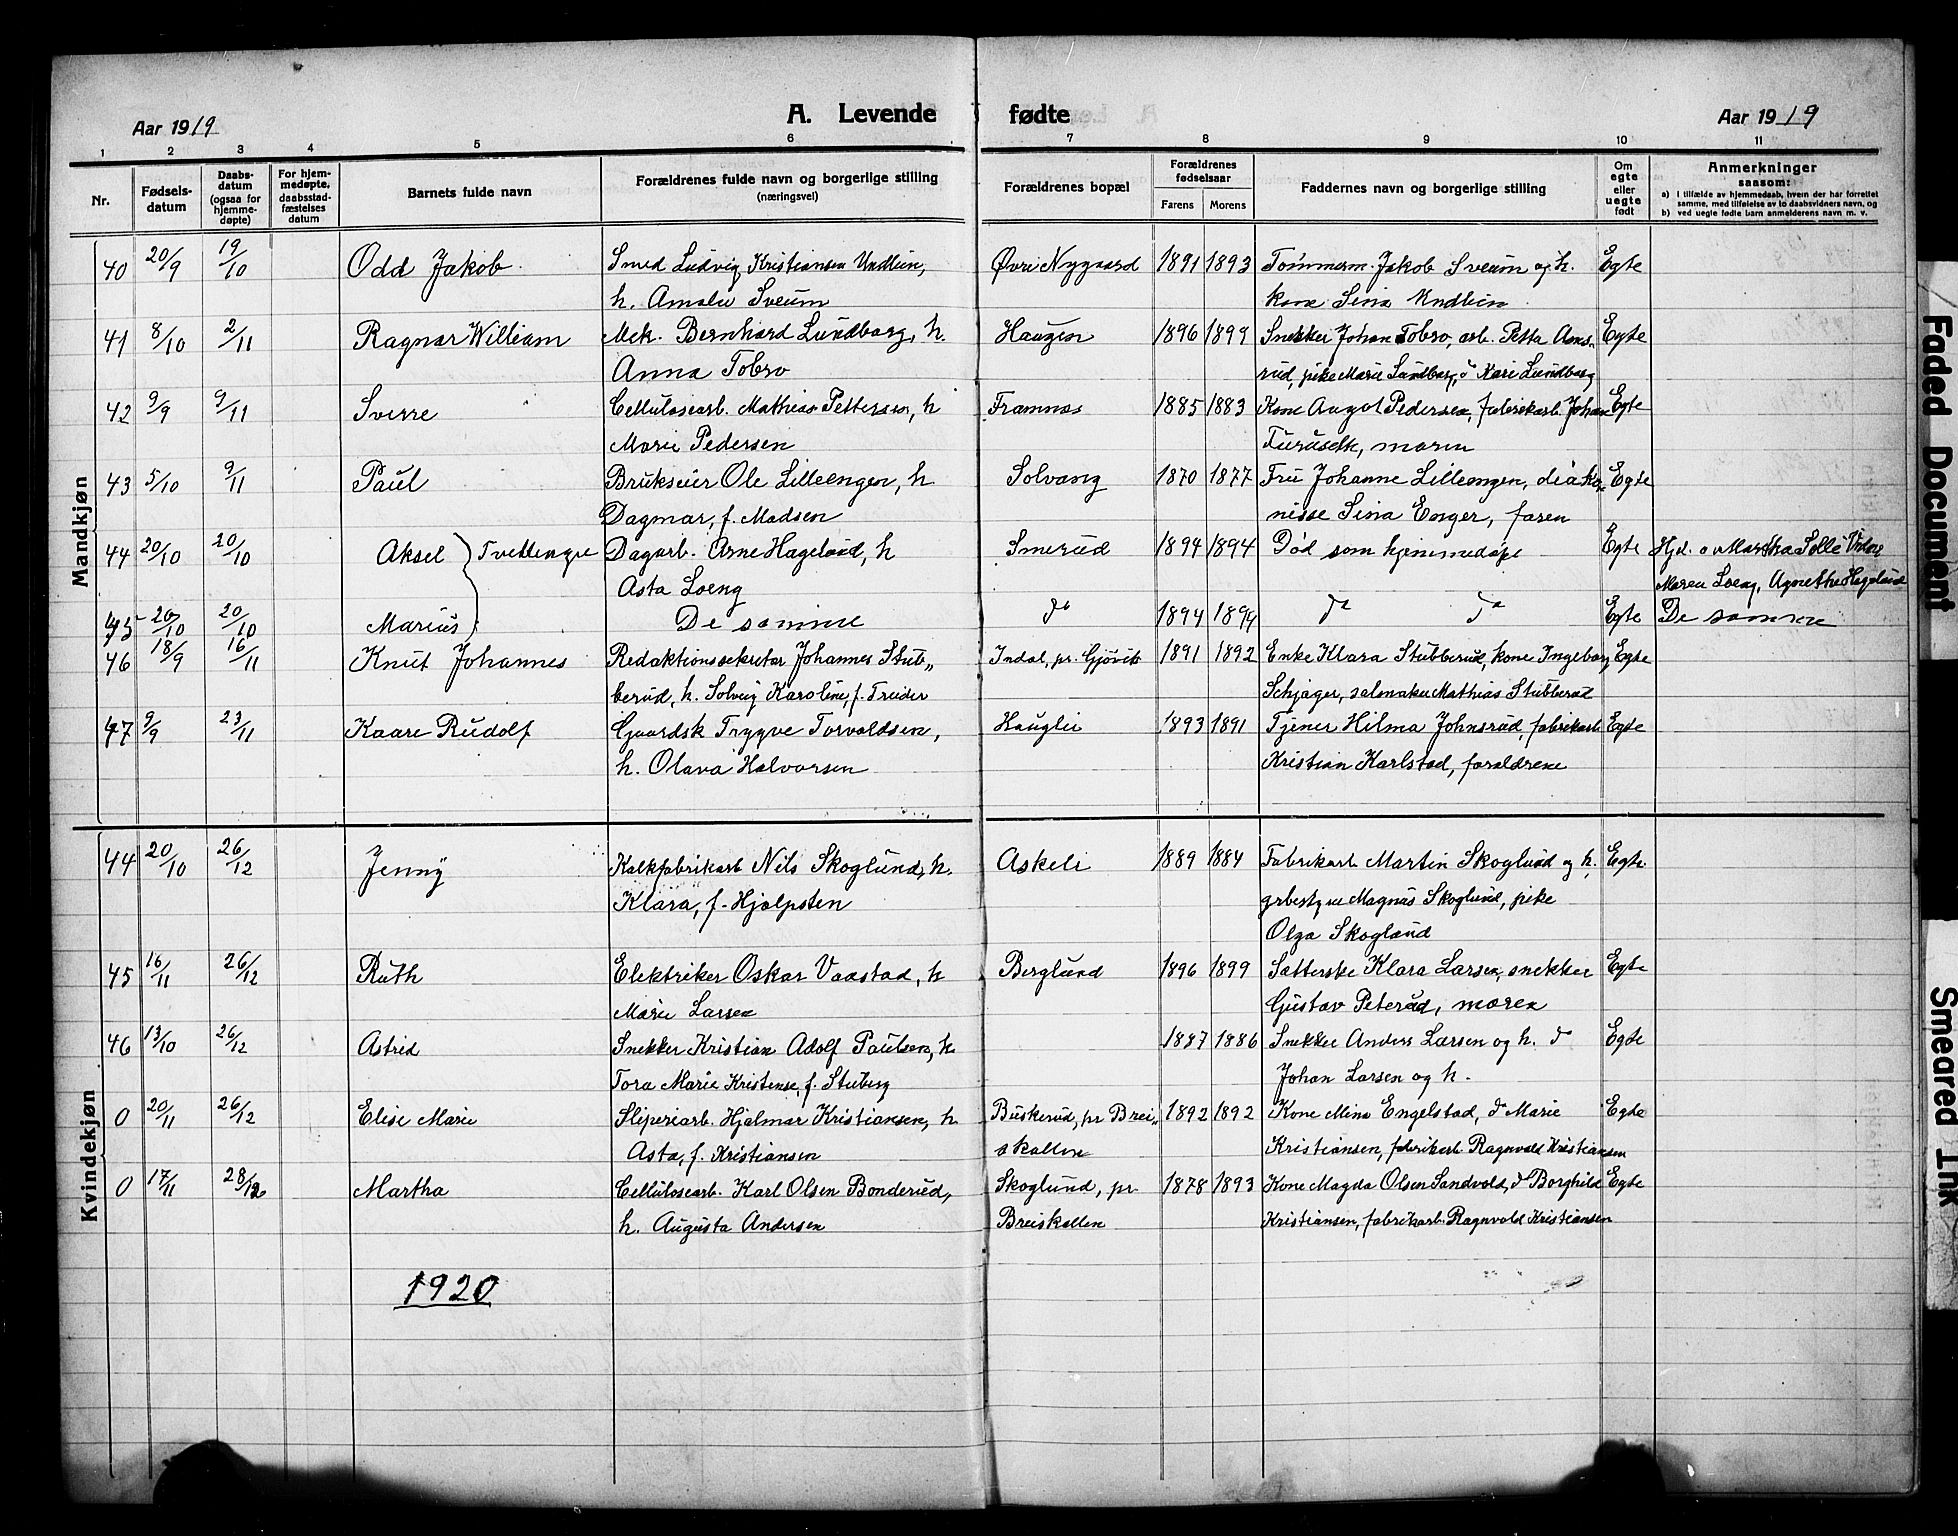 Aar 1919 A. Levende fødte Aar 1919
1 2 3 4 5 6 7 8 9 10 11
Nr. Fødselsdatum Daabsdatum (ogsaa for hjemmedøpte) For hjemmedøpte, daabsstadfæstelses datum Barnets fulde navn Forældrenes fulde navn og borgerlige stilling (næringsvei) Forældrenes bopæl Forældrenes fødselsaar Farens Morens Faddernes navn og borgerlige stilling Om egte eller uegte født Anmerkninger saasom: a) I tilfælde av hjemmedaab, hvem der har forrettet samme, med tilføielse av to daabsvidners navn, og b) ved uegte fødte barn anmelderens navn m. v.
Mandkjøn
40 20/9 19/10 Odd Jakob Smed Ludvig Kristiansen Undlien, Øvre Nygaard 1891 1893 Tømmerm. Jakob Sveum og h. Egte
h. Amalie Sveum kone Lina Undlien
41 8/10 2/11 Ragnar William Mek. Bernhard Lundborg, h. Haugen 1896 1899 Snekker Johan Tobro, arb. Petta Aas- Egte
Anna Tobro rud, pike Marie Lundborg, do Kari Lundborg
42 9/9 9/11 Sverre Cellulosearb. Mathias Pettersen, h Framnæs 1885 1883 Kone Aagot Pedersen, fabrikarb. Johan Egte
Marie Pedersen Furuseth, moren
43 5/10 9/11 Paul Brukseier Ole Lilleengen, h Solvang 1870 1877 Fru Johanne Lilleengen, diako- Egte
Dagmar, f. Madsen nisse Lina Enger, faren
44 20/10 20/10 Aksel } Tvillingre Dagarb. Arne Hagelund, h Smerud 1894 1894 Død som hjemmedøpt Egte Hjd. av Martha Solli Vidne
Asta Loeng Maren Loeng, Agnethe Hagelund
45 20/10 20/10 Marius De samme do 1894 1894 do do Egte De samme
46 18/9 16/11 Knut Johannes Redaktionssekretær Johannes Stub- Indal, pr. Gjøvik 1891 1892 Enke Klara Stubberud, kone Ingeborg Egte
berud, h. Solveig Karoline, f. Fruder Schjager, salmaker Mathias Stubberud
47 9/9 23/11 Kaare Rudolf Gaardsk Trygve Torvaldsen, Hauglie 1893 1891 Tjener Hilma Johnsrud, fabrikarb Egte
h. Olava Halvorsen Kristian Karlstad, forældrene
Kvindekjøn
44 20/10 26/12 Jenny Kalkfabrikarb Nils Skoglund, h. Askeli 1889 1884 Fabrikarb Martin Skoglund og h. Egte
Klara, f. Hjelpsten grbestyrer Magnus Skoglund, pike
Olga Skoglund
45 16/11 26/12 Ruth Elektriker Oskar Vaastad, h Berglund 1896 1899 Sætterske Klara Larsen, snekker Egte
Marie Larsen Gustav Peterud, moren
46 13/10 26/12 Astrid Snekker Kristian Adolf Paulsen, h 1887 1886 Snekker Anders Larsen og h. do Egte
Tora Marie Kristense, f. Stuberg Johan Larsen og h.
0 20/11 26/12 Elise Marie Sliperiarb. Hjalmar Kristiansen, h Buskerud, pr Brei- 1892 1892 Kone Mina Engelstad, do Marie Egte
Asta, f. Kristiansen skallen Kristiansen, fabrikarb. Ragnvald Kristiansen
0 17/11 28/12 Martha Cellulosearb. Karl Olsen Bonderud, Skoglund, pr 1878 1893 Kone Magda Olsen Sandvold, do Borghild Egte
h. Augusta Andersen Breiskallen Kristiansen, fabrikarb. Ragnvald Kristiansen
1920
Faded Document
Smeared Ink